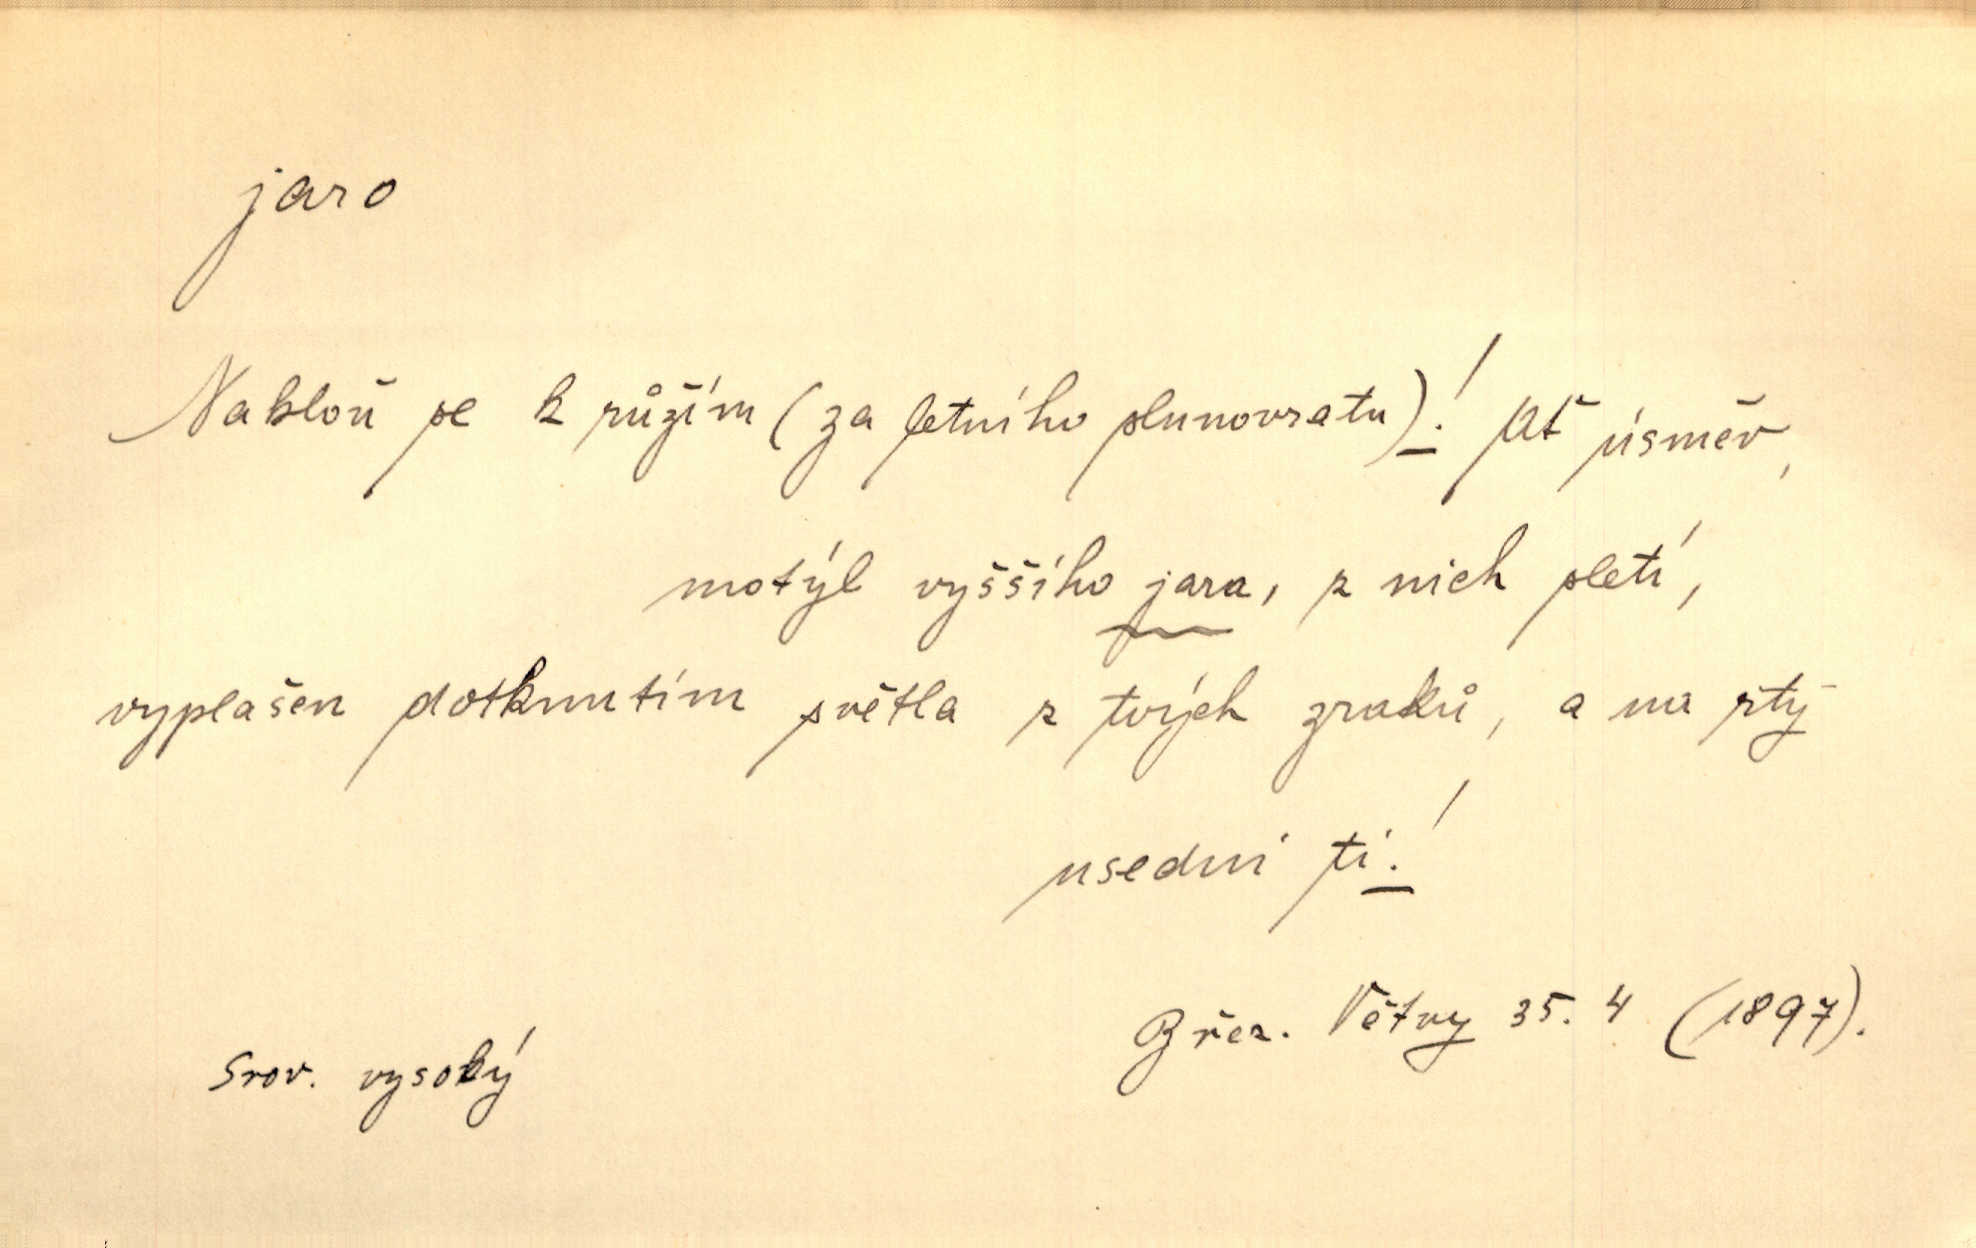 jaro
Nakloň se k růžím (za letního slunovratu)! Ať úsměv,
motýl vyššího jara, z nich sletí,
vyplašen dotknutím světla z tvých zraků, a na rty
usedni ti!
Břez. Větry 35.4 (1897).
Srov. vysoký